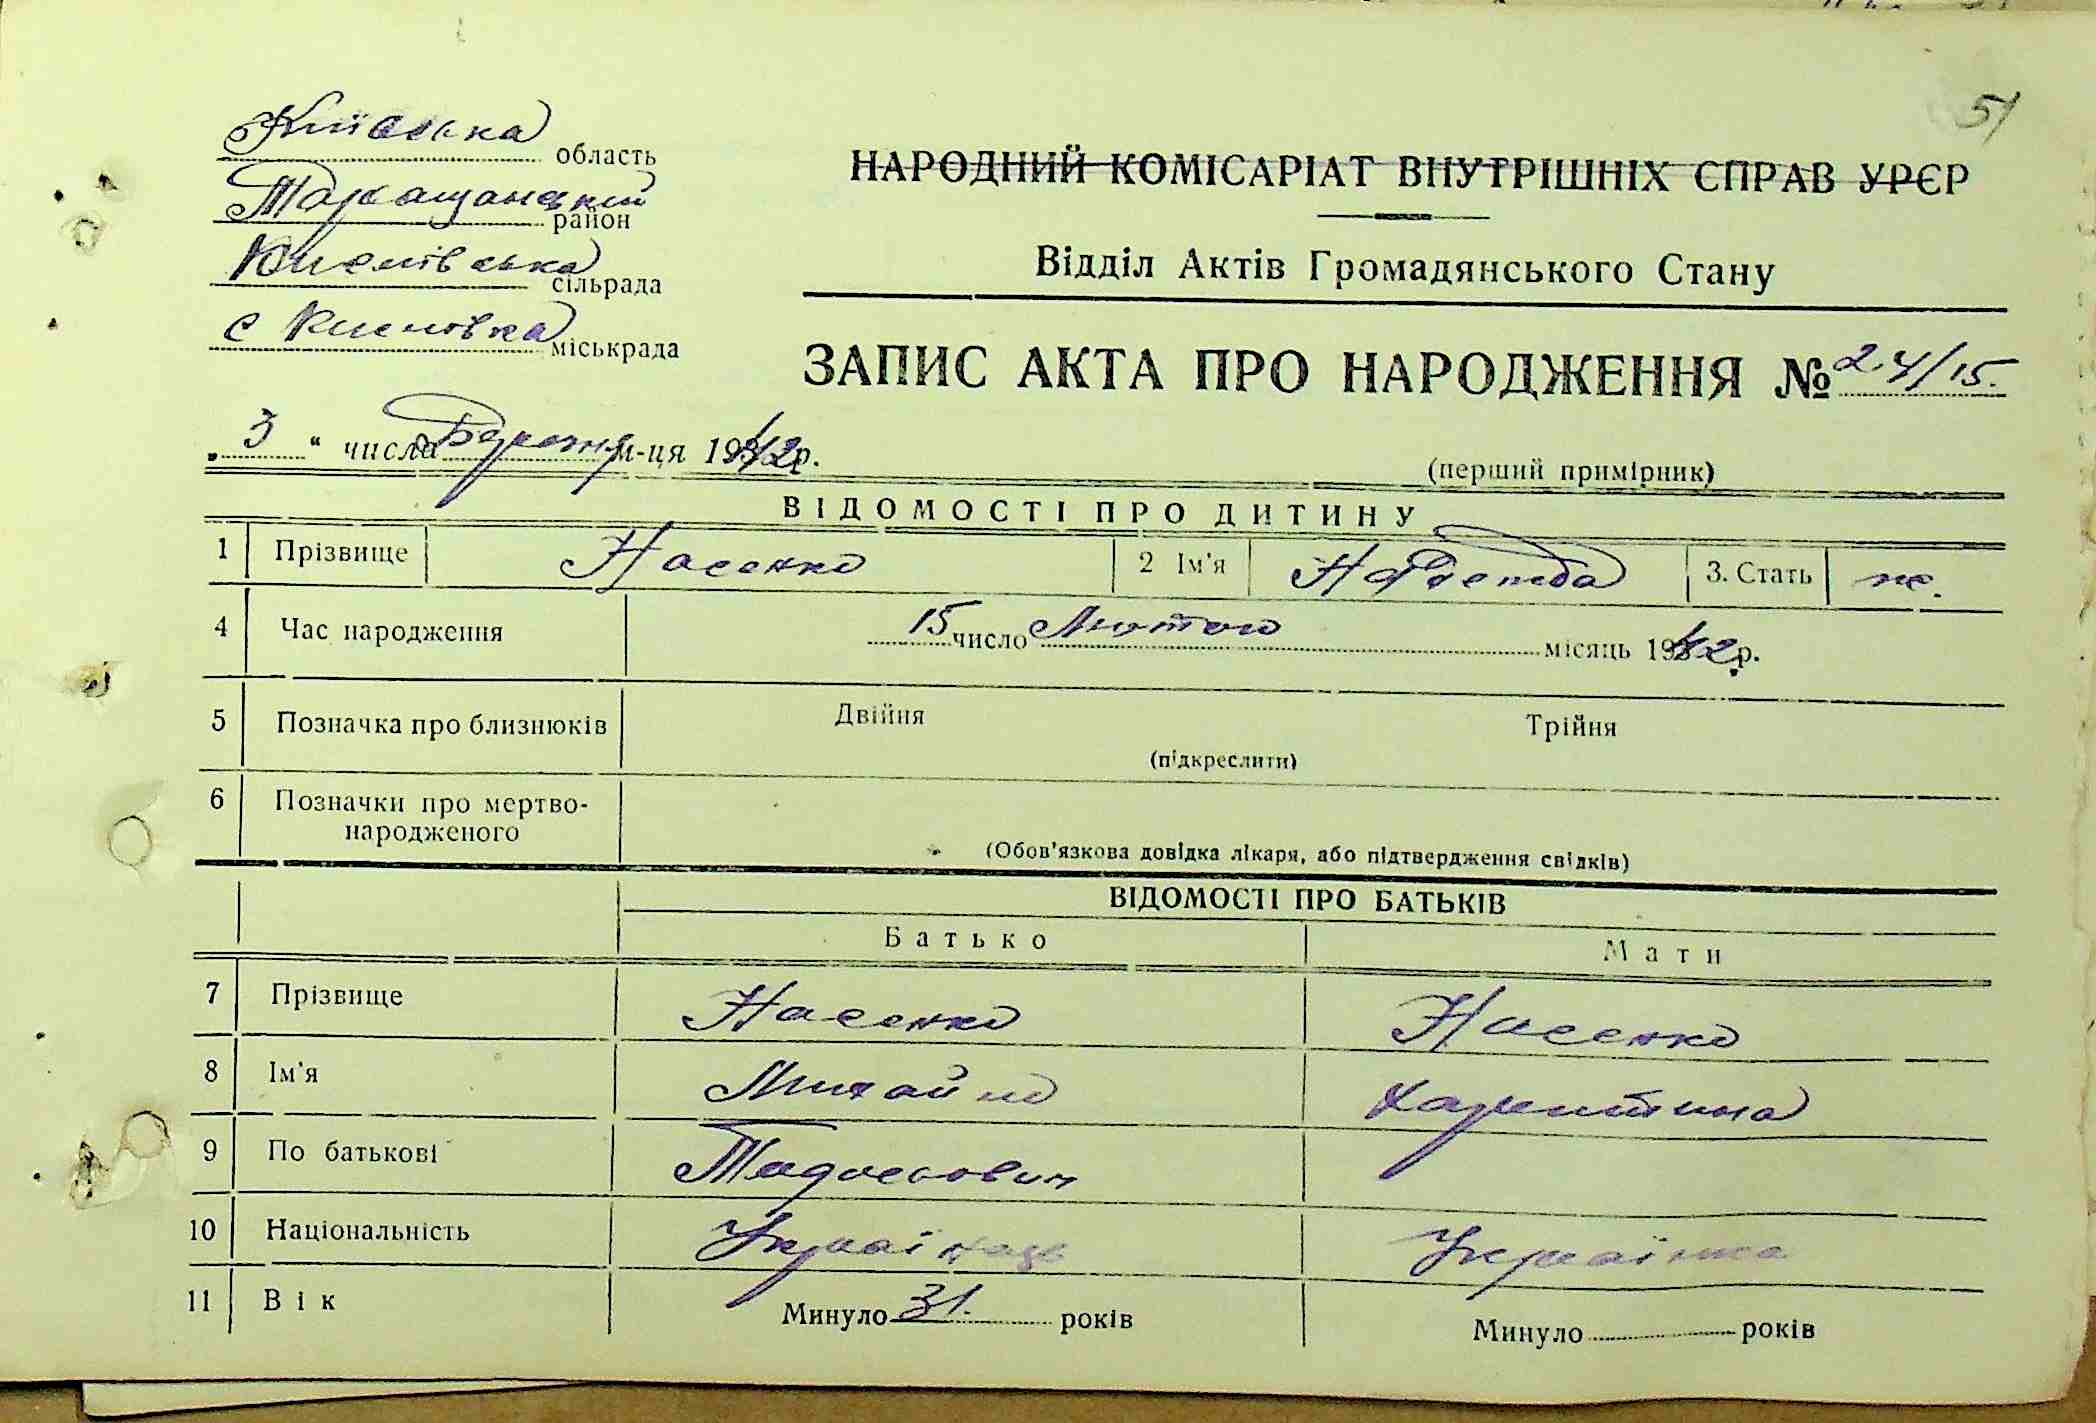 51
Київська область
Таращанський район
Кислівська сільрада
с Кисловка міськрада
НАРОДНИЙ КОМІСАРІАТ ВНУТРІШНІХ СПРАВ УРЄР
Відділ Актів Громадянського Стану
ЗАПИС АКТА ПРО НАРОДЖЕННЯ № 24/15.
„3“ числа Березня м-ця 1942р.
(перший примірник)
ВІДОМОСТІ ПРО ДИТИНУ
1 Прізвище Насенко 2 Ім'я Надежда 3. Стать ж.
4 Час народження 15 число Лютого місяць 1942р.
5 Позначка про близнюків Двійня Трійня
(підкреслити)
6 Позначки про мертво-
народженого
(Обов'язкова довідка лікаря, або підтвердження свідків)
ВІДОМОСТІ ПРО БАТЬКІВ
Батько Мати
7 Прізвище Насенко Насенко
8 Ім'я Михайло Харитина
9 По батькові Тодосович
10 Національність Українець Українка
11 Вік Минуло 31. років Минуло років